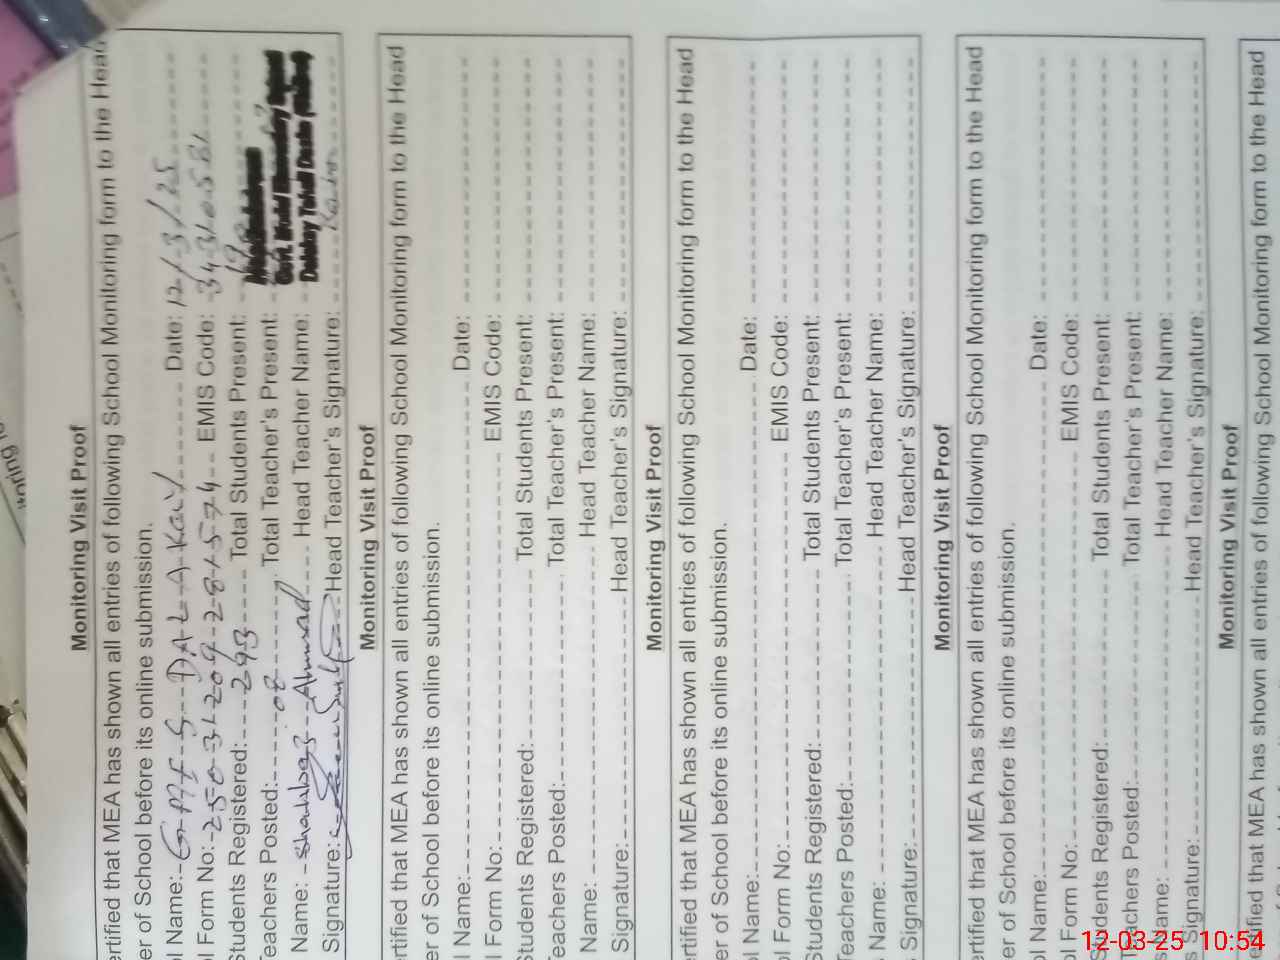 Monitoring Visit Proof
ertified that MEA has shown all entries of following School Monitoring form to the Head
er of School before its online submission.
l Name: DALAKAY Date: 12/3/25
l Form No: EMIS Code:
Students Registered: 293 Total Students Present:
Teachers Posted: 08 Total Teacher's Present:
Name: Shahbaz Ahmad Head Teacher Name:
Signature: Head Teacher's Signature:
Monitoring Visit Proof
ertified that MEA has shown all entries of following School Monitoring form to the Head
er of School before its online submission.
l Name: Date:
l Form No: EMIS Code:
Students Registered: Total Students Present:
Teachers Posted: Total Teacher's Present:
Name: Head Teacher Name:
Signature: Head Teacher's Signature:
Monitoring Visit Proof
ertified that MEA has shown all entries of following School Monitoring form to the Head
er of School before its online submission.
ol Name: Date:
ol Form No: EMIS Code:
Students Registered: Total Students Present:
Teachers Posted: Total Teacher's Present:
Name: Head Teacher Name:
s Signature: Head Teacher's Signature:
Monitoring Visit Proof
ertified that MEA has shown all entries of following School Monitoring form to the Head
er of School before its online submission.
ol Name: Date:
ol Form No: EMIS Code:
Students Registered: Total Students Present:
Teachers Posted: Total Teacher's Present:
s Name: Head Teacher Name:
s Signature: Head Teacher's Signature:
Monitoring Visit Proof
ertified that MEA has shown all entries of following School Monitoring form to the Head
12-03-25 10:54